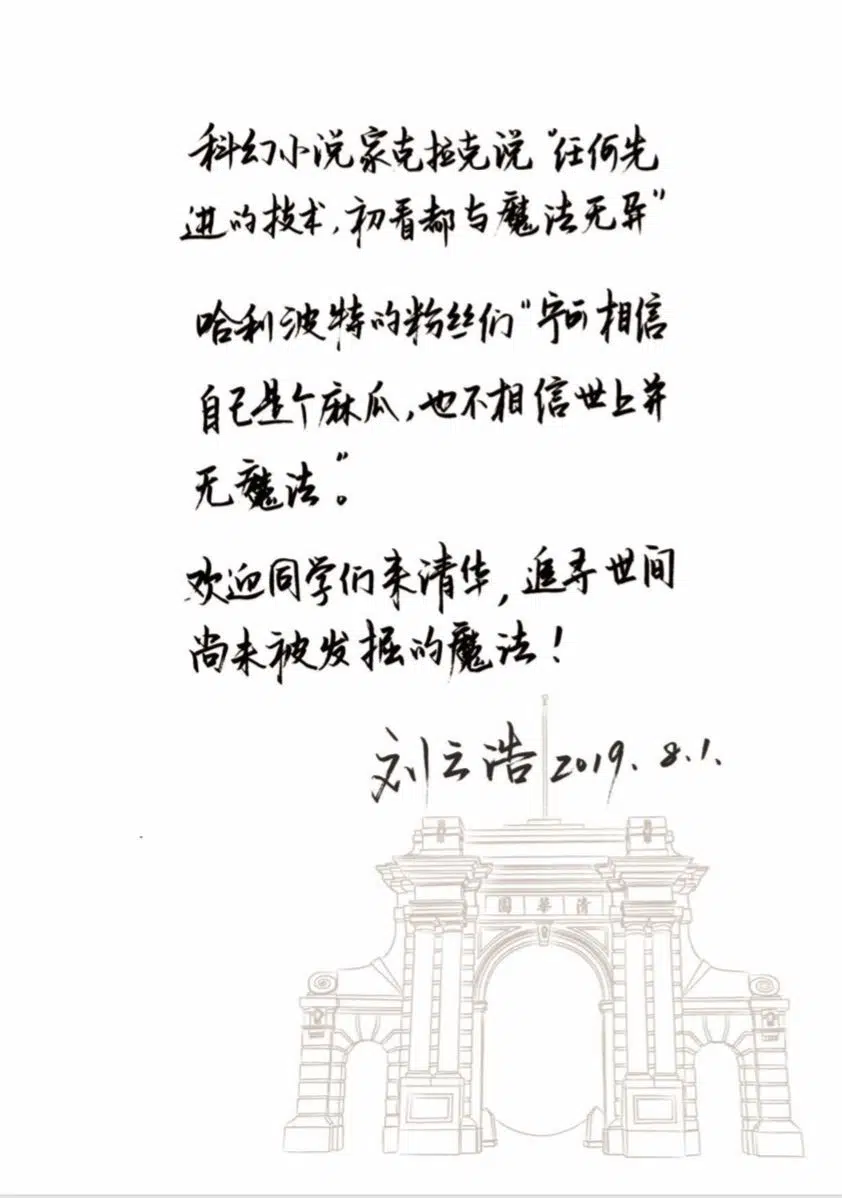 科幻小说家克拉克说“任何先
进的技术,初看都与魔法无异”
哈利波特的粉丝们“宁可相信
自己是个麻瓜,也不相信世上并
无魔法”。
欢迎同学们来清华,追寻世间
尚未被发掘的魔法!
刘云浩 2019.8.1.
園華清